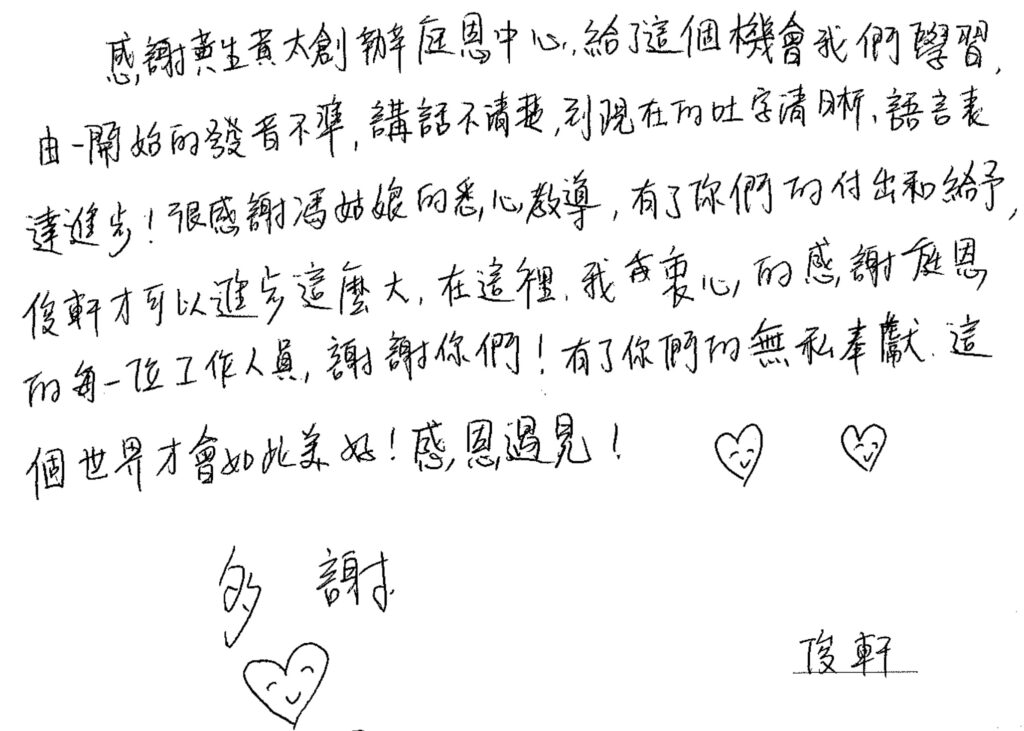 感謝黃生黃太創辦庭恩中心,給了這個機會我們學習,
由一開始的發音不準,講話不清楚,到現在的吐字清晰、語言表
達進步!很感謝馮姑娘的悉心教導,有了你們的付出和給予,
俊軒才可以進步這麼大,在這裡,我衷心的感謝庭恩
的每一位工作人員,謝謝你們!有了你們的無私奉獻、這
個世界才會如此美好!感恩遇見!
多謝
俊軒